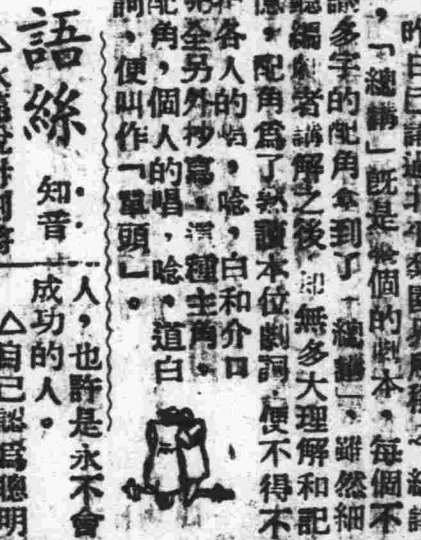 昨日已講過北平
，「總講」既是整個的劇本，每個不
多字的配角拿到了「總講」，雖然細
聽編劇者講解之後，卻無多大理解和記
憶。配角爲了熟讀本位劇詞，便不得不
各人的唱，唸，白和介口
完全另外抄寫。這種主角，
配角，個人的唱，唸。道白
詞，便叫作「單頭」。
語絲
知音
人，也許是永不會
成功的人。
△自己認爲聰明